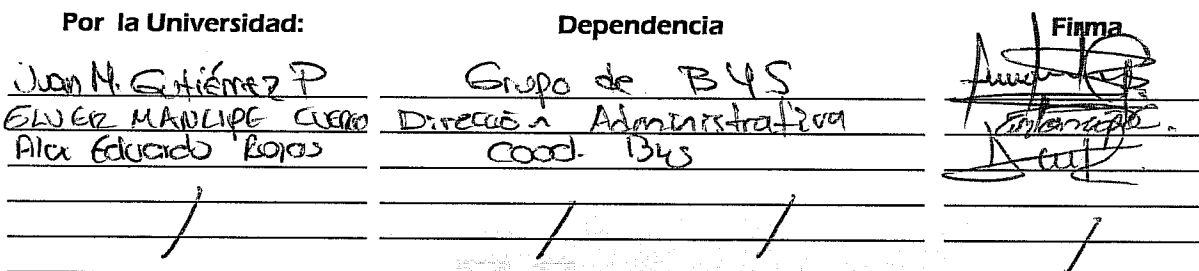 Por la Universidad: Dependencia Firma
Juan M. Gutiérrez P Grupo de BYS
ELVER MANCIPE CUERO Dirección Administrativa EMancipe.
Alex Eduardo Rojas Cood. BYS